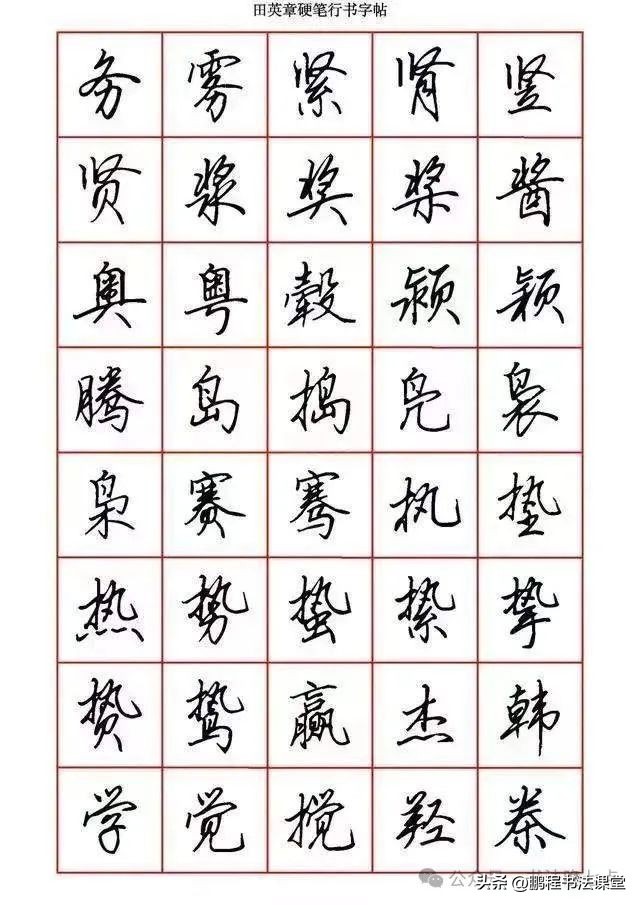 田英章硬笔行书字帖
务雾紧肾竖
贤浆奖桨酱
奥粤毂颍颖
腾岛捣凫袅
枭赛骞执垫
热势蛰絷挚
贽鸷赢杰韩
学觉搅羟
公众号
头条 @鹏程书法课堂